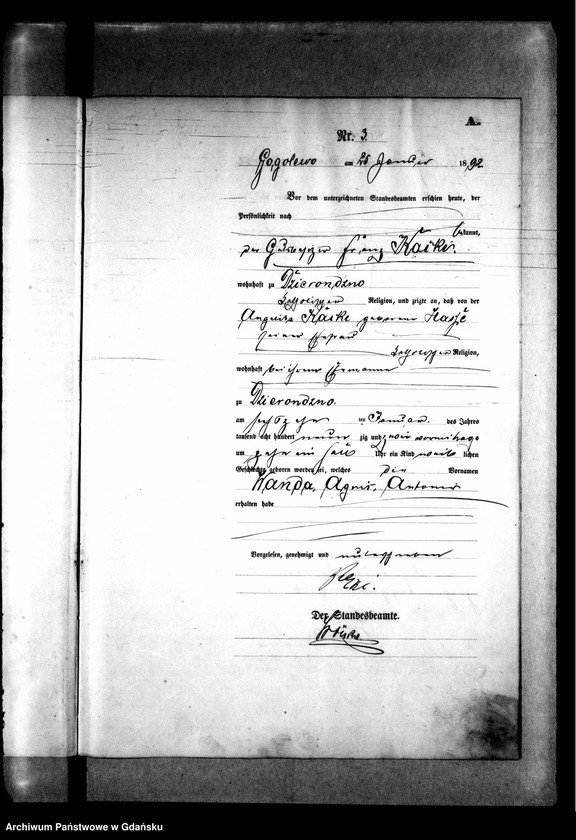 A.
Nr. 3
Gogolewo am 25 Januar 1892
Vor dem unterzeichneten Standesbeamten erschien heute, der
Persönlichkeit nach
bekannt,
der Gutsbesitzer Franz
wohnhaft zu Dzierondzno
katholischer Religion, und zeigte an, daß von der
geborene
seiner Ehefrau
katholischer Religion,
wohnhaft bei ihrem Ehemanne
zu Dzierondzno
am sechszehnten Januar des Jahres
tausend acht hundert neunzig und zwei vormittags
um zehn ein halb Uhr ein Kind weiblichen
Geschlechts geboren worden sei, welches die Vornamen
Wanda, Agnes, Antonie
erhalten habe
Vorgelesen, genehmigt und unterschrieben
Der Standesbeamte.
Archiwum Państwowe w Gdańsku